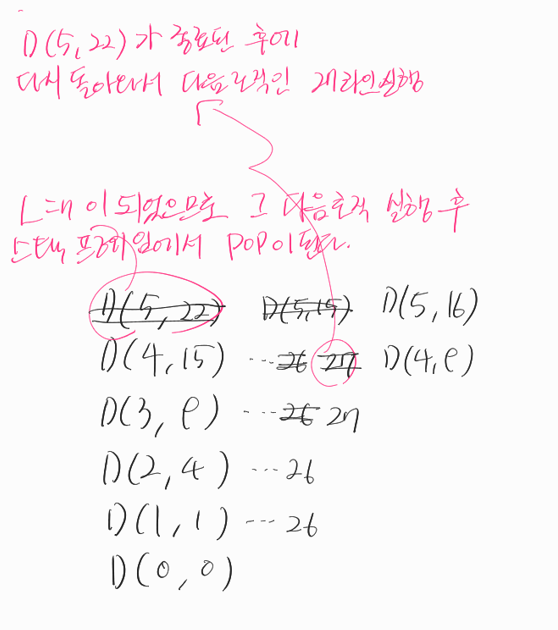 D(5,22)가 종료된 후에
다시 돌아와서 다음로직인 27라인실행
L=n 이 되었으므로 그 다음로직 실행 후
스택 프레임에서 POP이 된다.
D(5,22) D(5,15) D(5,16)
D(4,15) ...26 27 D(4,8)
D(3,8) ...26 27
D(2,4) ...26
D(1,1) ...26
D(0,0)